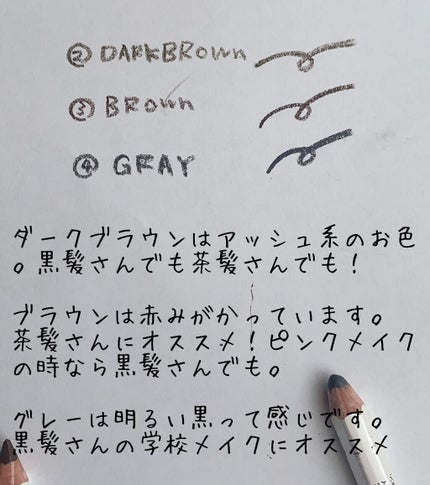 ② DARKBROWN
③ BROWN
④ GRAY
ダークブラウンはアッシュ系のお色
。黒髪さんでも茶髪さんでも!
ブラウンは赤みがかっています。
茶髪さんにオススメ!ピンクメイク
の時なら黒髪さんでも。
グレーは明るい黒って感じです。
黒髪さんの学校メイクにオススメ